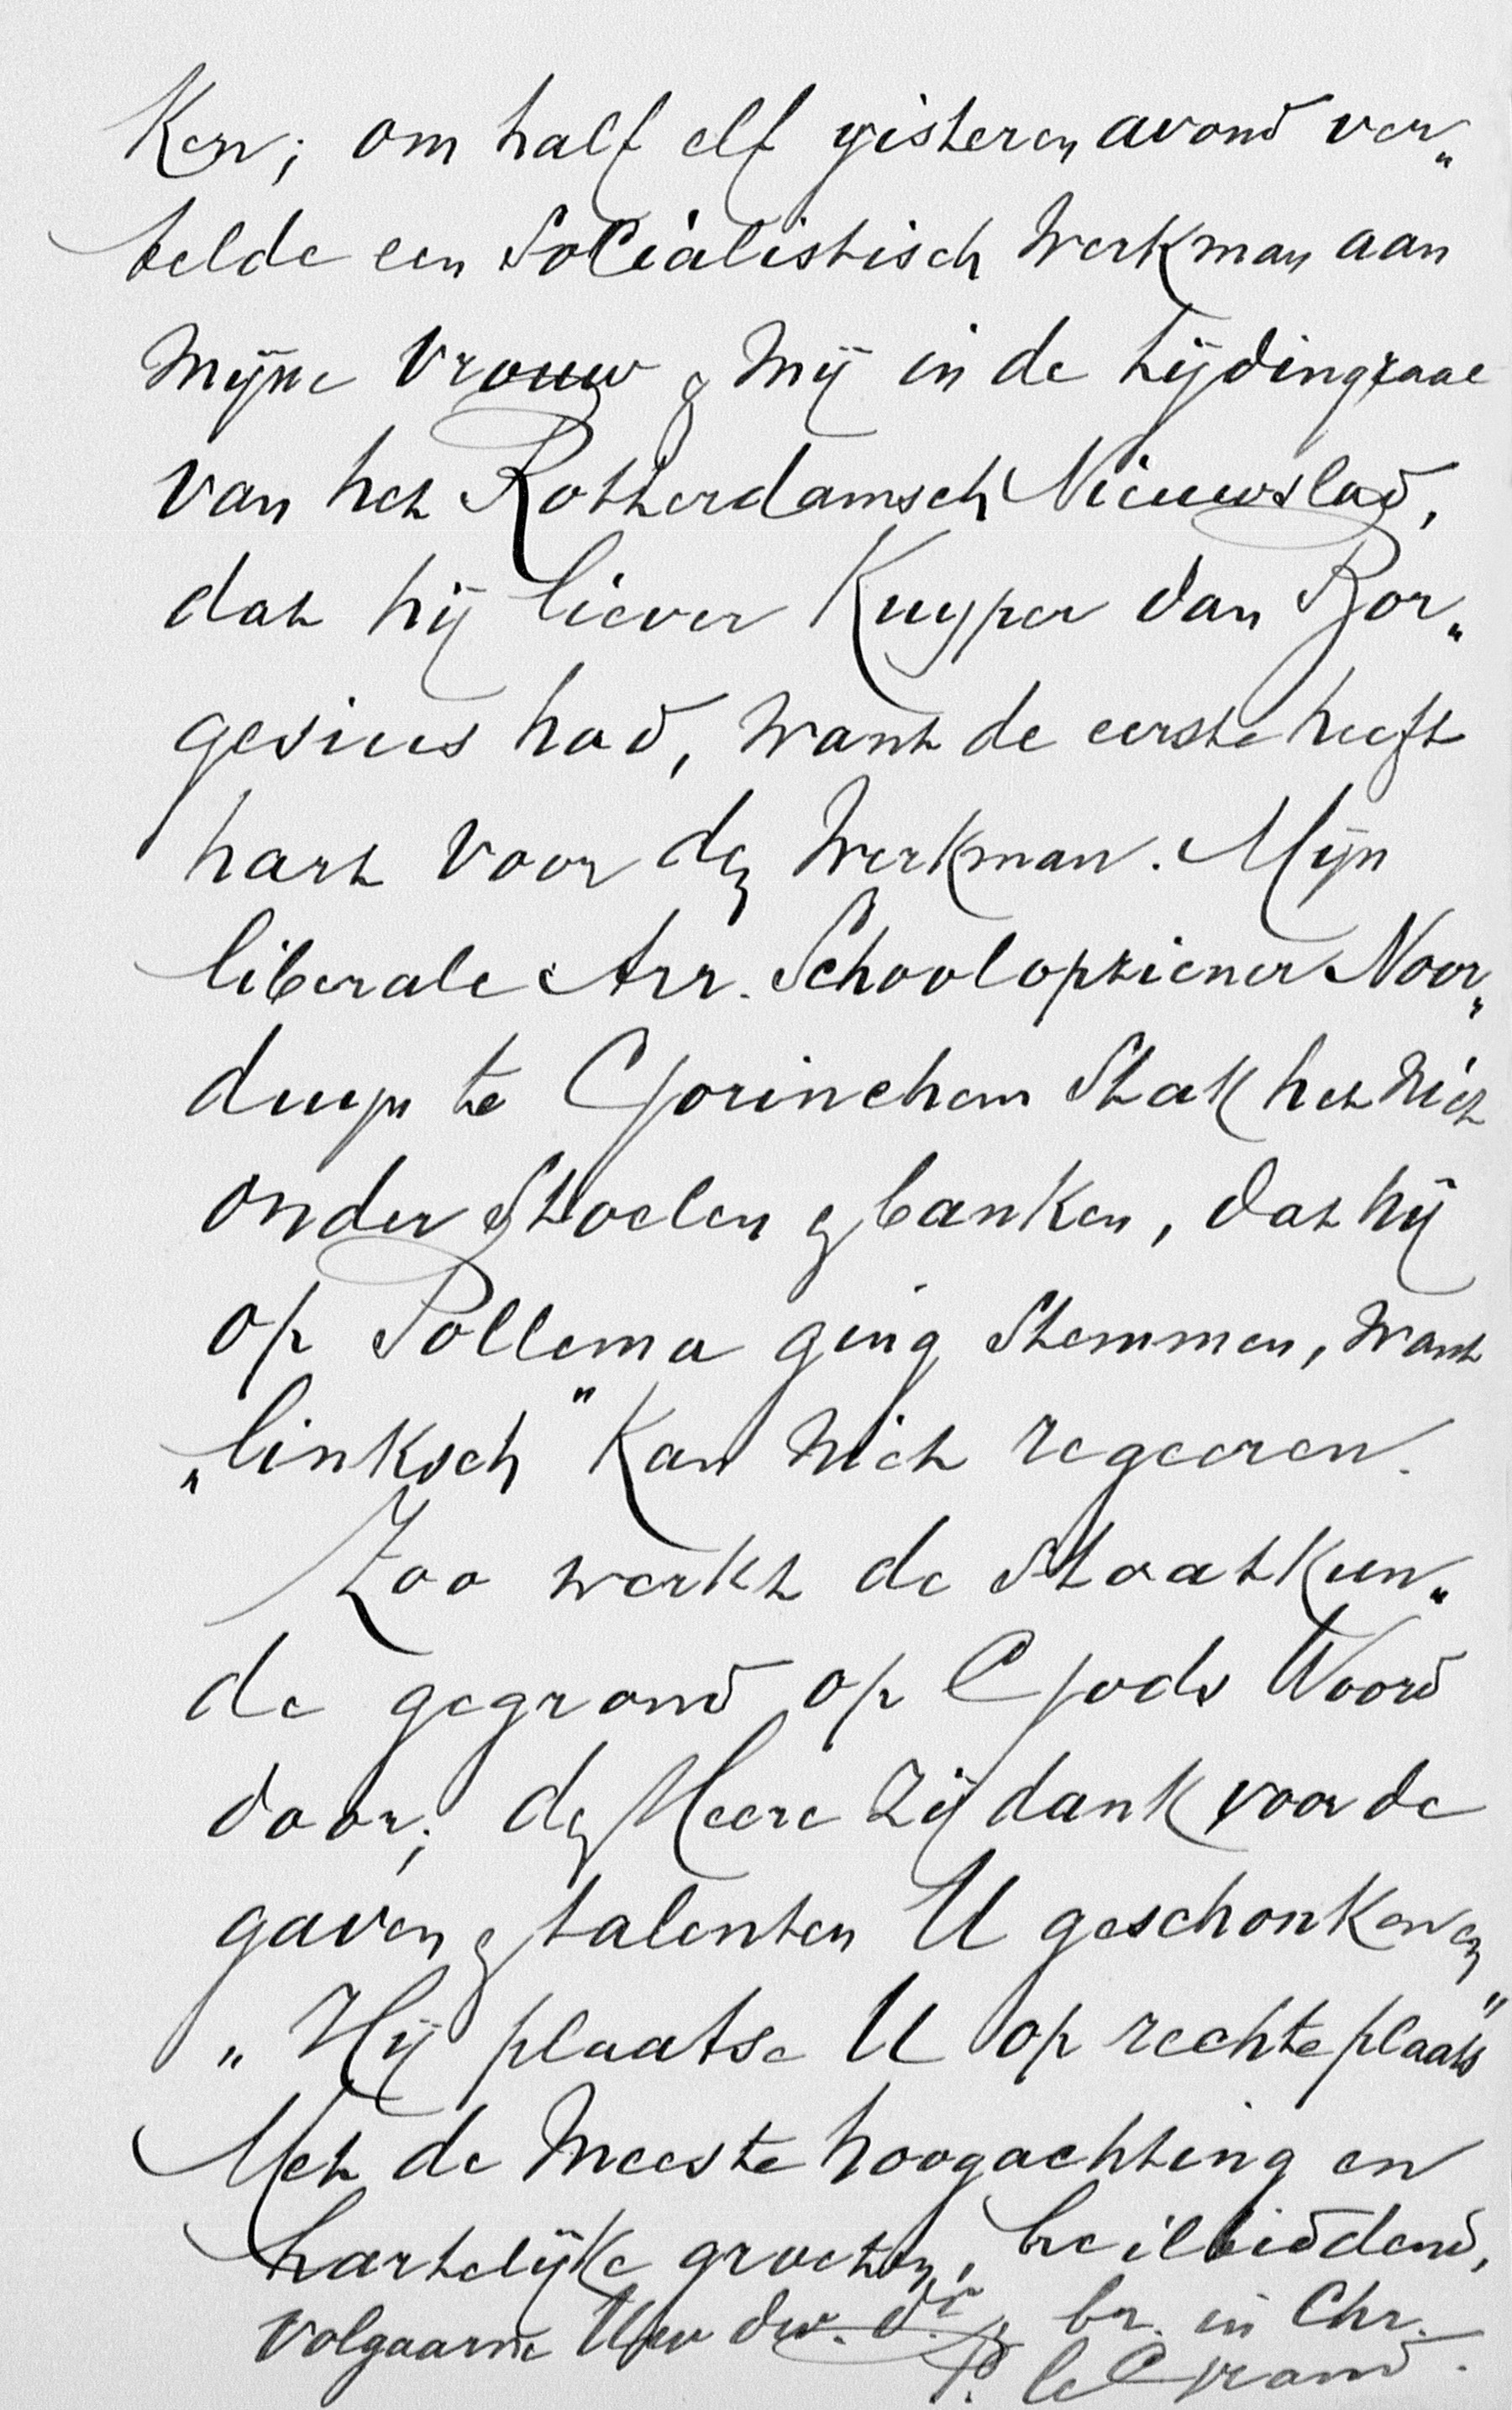 Ken; om half elf gisteren avond ver„
telde een Socialistisch Werkman aan
Mijne Vrouw & Mij in de tijdingzaal
van het Rotterdamsch Nieuwslad,
dat hij liever Kuyper dan Bor„
gesius had, want de eerste heeft
hart voor den Werkman. Mijn
liberale Arr. Schoolopziener Noor„
duyn te Gorinchem Stak het niet
onder Stoelen & banken, dat hij
op Pollema ging Stemmen, want
„linksch" Kan niet regeeren.
Zoo werkt de Staatkun„
de gegrond op Gods Woord
door; den Heere zij dank voor de
gaven & talenten U geschonken en
„Hij plaatse U op rechte plaats"
Met de Meeste hoogachting en
hartelijke groeten, heilbiddend,
Volgaarne Uw dw. dr & br. in Chr.
P. le Grand.